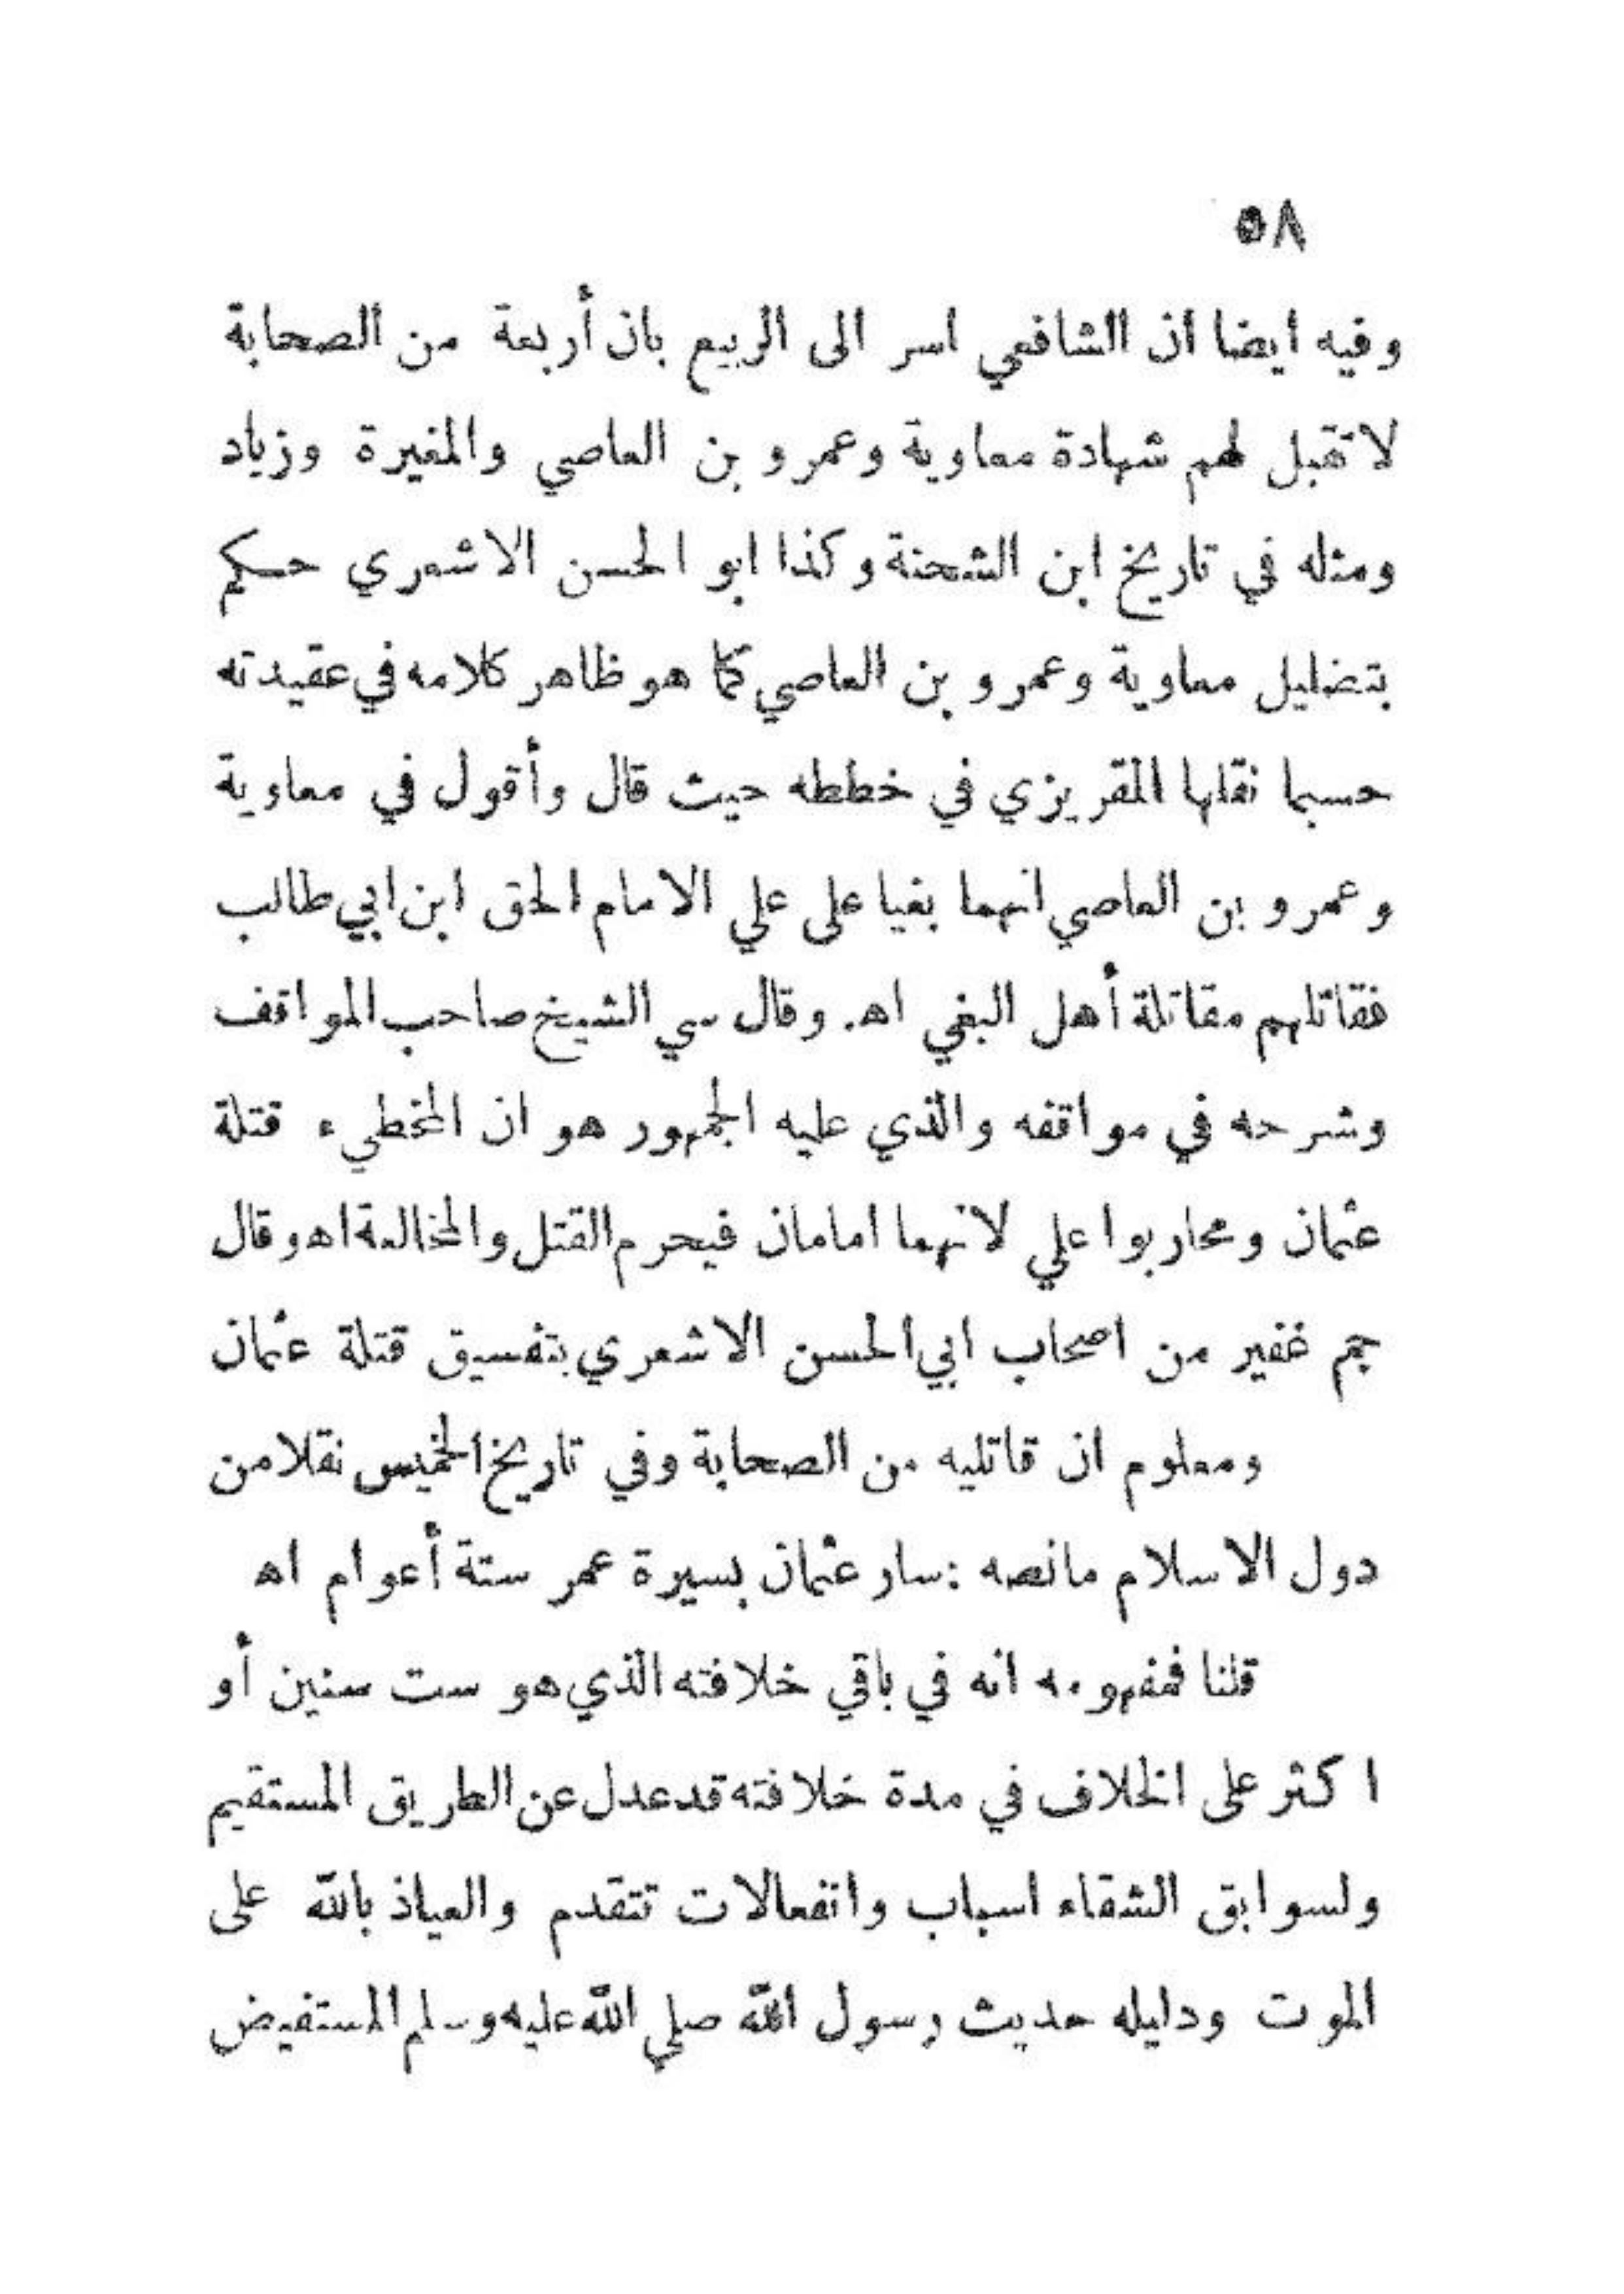 ٥٨
وفيه ايضا ان الشافعي اسر الى الربيع بان أربعة من الصحابة
لاتقبل لهم شهادة معاوية وعمرو بن العاصي والمغيرة وزياد
ومثله في تاريخ ابن الشحنة وكذا ابو الحسن الاشعري حكم
بتضليل معاوية وعمرو بن العاصي كما هو ظاهر كلامه في عقيدته
حسبما نقلها المقريزي في خططه حيث قال وأقول في معاوية
وعمرو بن العاصي انهما بغيا على علي الامام الحق ابن ابي طالب
فقاتلهم مقاتلة أهل البغي اه. وقال سي الشيخ صاحب المواقف
وشرحه في مواقفه والذي عليه الجمهور هو ان المخطيء قتلة
عثمان ومحاربوا علي لانهما امامان فيحرم القتل والمخالعة اه وقال
جم غفير من اصحاب ابي الحسن الاشعري بتفسيق قتلة عثمان
ومعلوم ان قاتليه من الصحابة وفي تاريخ الخميس نقلا من
دول الاسلام مانصه : سار عثمان بسيرة عمر ستة أعوام اه
قلنا فمفهومه انه في باقي خلافته الذي هو ست سنين أو
اكثر على الخلاف في مدة خلافته قد عدل عن الطريق المستقيم
ولسوابق الشقاء اسباب وانفعالات تتقدم والعياذ بالله على
الموت ودليله حديث رسول الله صلي الله عليه وسلم المستفيض